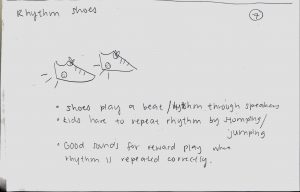 Rhythm shoes
7
• Shoes play a beat/rhythm through speakers
• Kids have to repeat rhythm by stomping/
jumping
• Good sounds for reward play when
rhythm is repeated correctly.